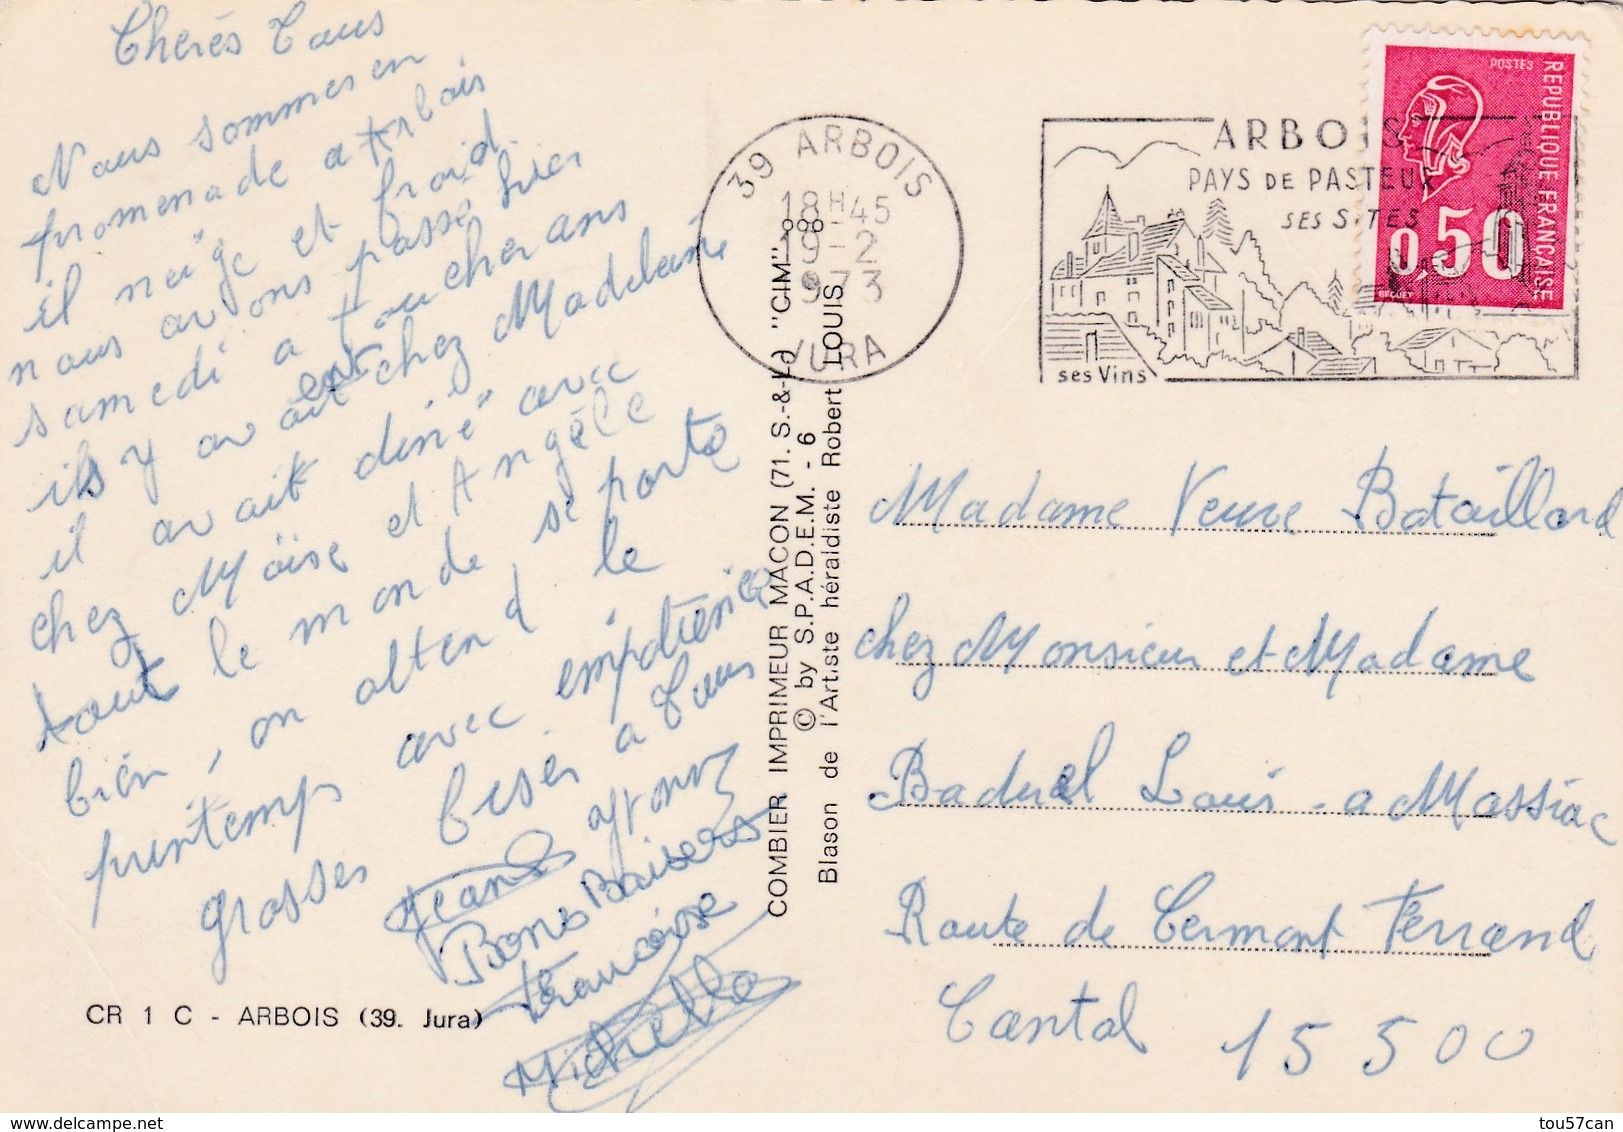 Chérés Tous
Nous sommes en
promenade a Arbois
il neige et froid.
nous avons passé hier
samedi a foucherans
ils y avait est chez Madeleine
il avait diné avec
chez Moïse et Angèle
tout le monde se porte
bien, on attend le
printemps avec impatience
grosses bises a Tous
Jean
Bons Baisers
Françoise
Michelle
CR 1 C - ARBOIS (39. Jura)
COMBIER IMPRIMEUR MACON (71. S.-&-L.) "CIM"
© by S.P.A.D.E.M. - 6
Blason de l'Artiste héraldiste Robert LOUIS
39 ARBOIS
18H45
19-2
1973
JURA
ARBOIS
PAYS DE PASTEUR
SES SITES
ses Vins
POSTES
REPUBLIQUE FRANÇAISE
0,50
BEQUET
Madame Veuve Bataillard
chez Monsieur et Madame
Baduel Louis - a Massiac
Route de Cermont Ferrand
Cantal 15500
tou57can